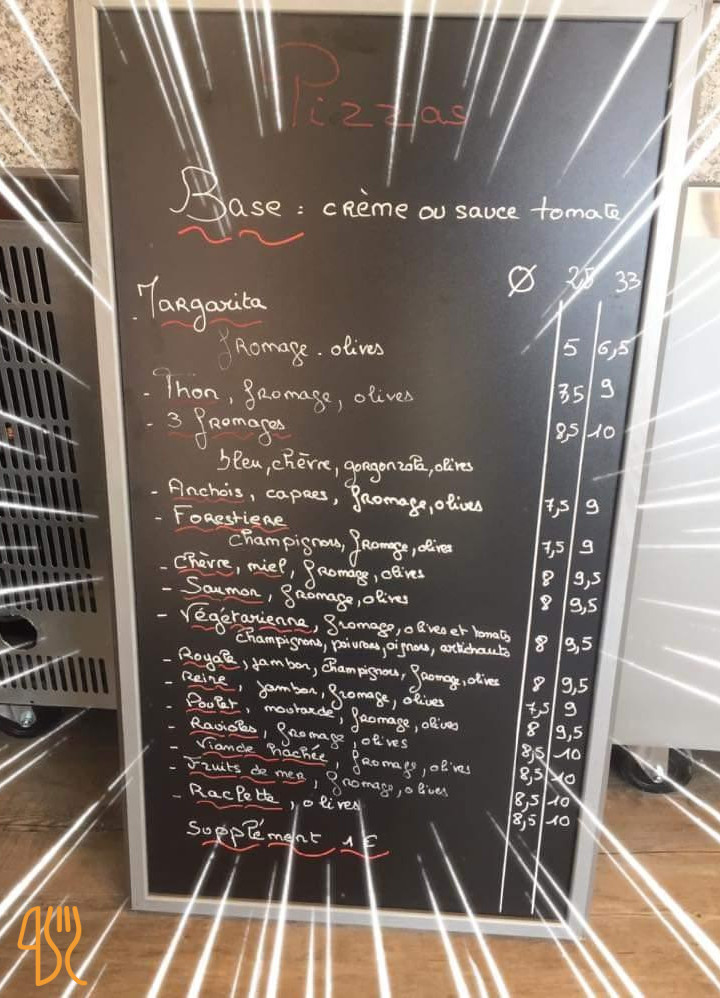 Pizzas
Base : crème ou sauce tomate
Ø 25 33
- Margarita
fromage . olives 5 6,5
- Thon, fromage, olives 7,5 9
- 3 fromages 8,5 10
bleu, chèvre, gorgonzola, olives
- Anchois, capres, fromage, olives 7,5 9
- Forestiere
champignons, fromage, olives 7,5 9
- Chèvre, miel, fromage, olives 8 9,5
- Saumon, fromage, olives 8 9,5
- Végétarienne, fromage, olives et tomate,
champignons, poivrons, oignons, artichauts 8 9,5
- Royale, jambon, champignons, fromage, olives 8 9,5
- Reine, jambon, fromage, olives 7,5 9
- Poulet, moutarde, fromage, olives 8 9,5
- Ravioles, fromage, olives 8,5 10
- Viande hachée, fromage, olives 8,5 10
- Fruits de mer, fromage, olives 8,5 10
- Raclette, olives 8,5 10
Supplément 1 €